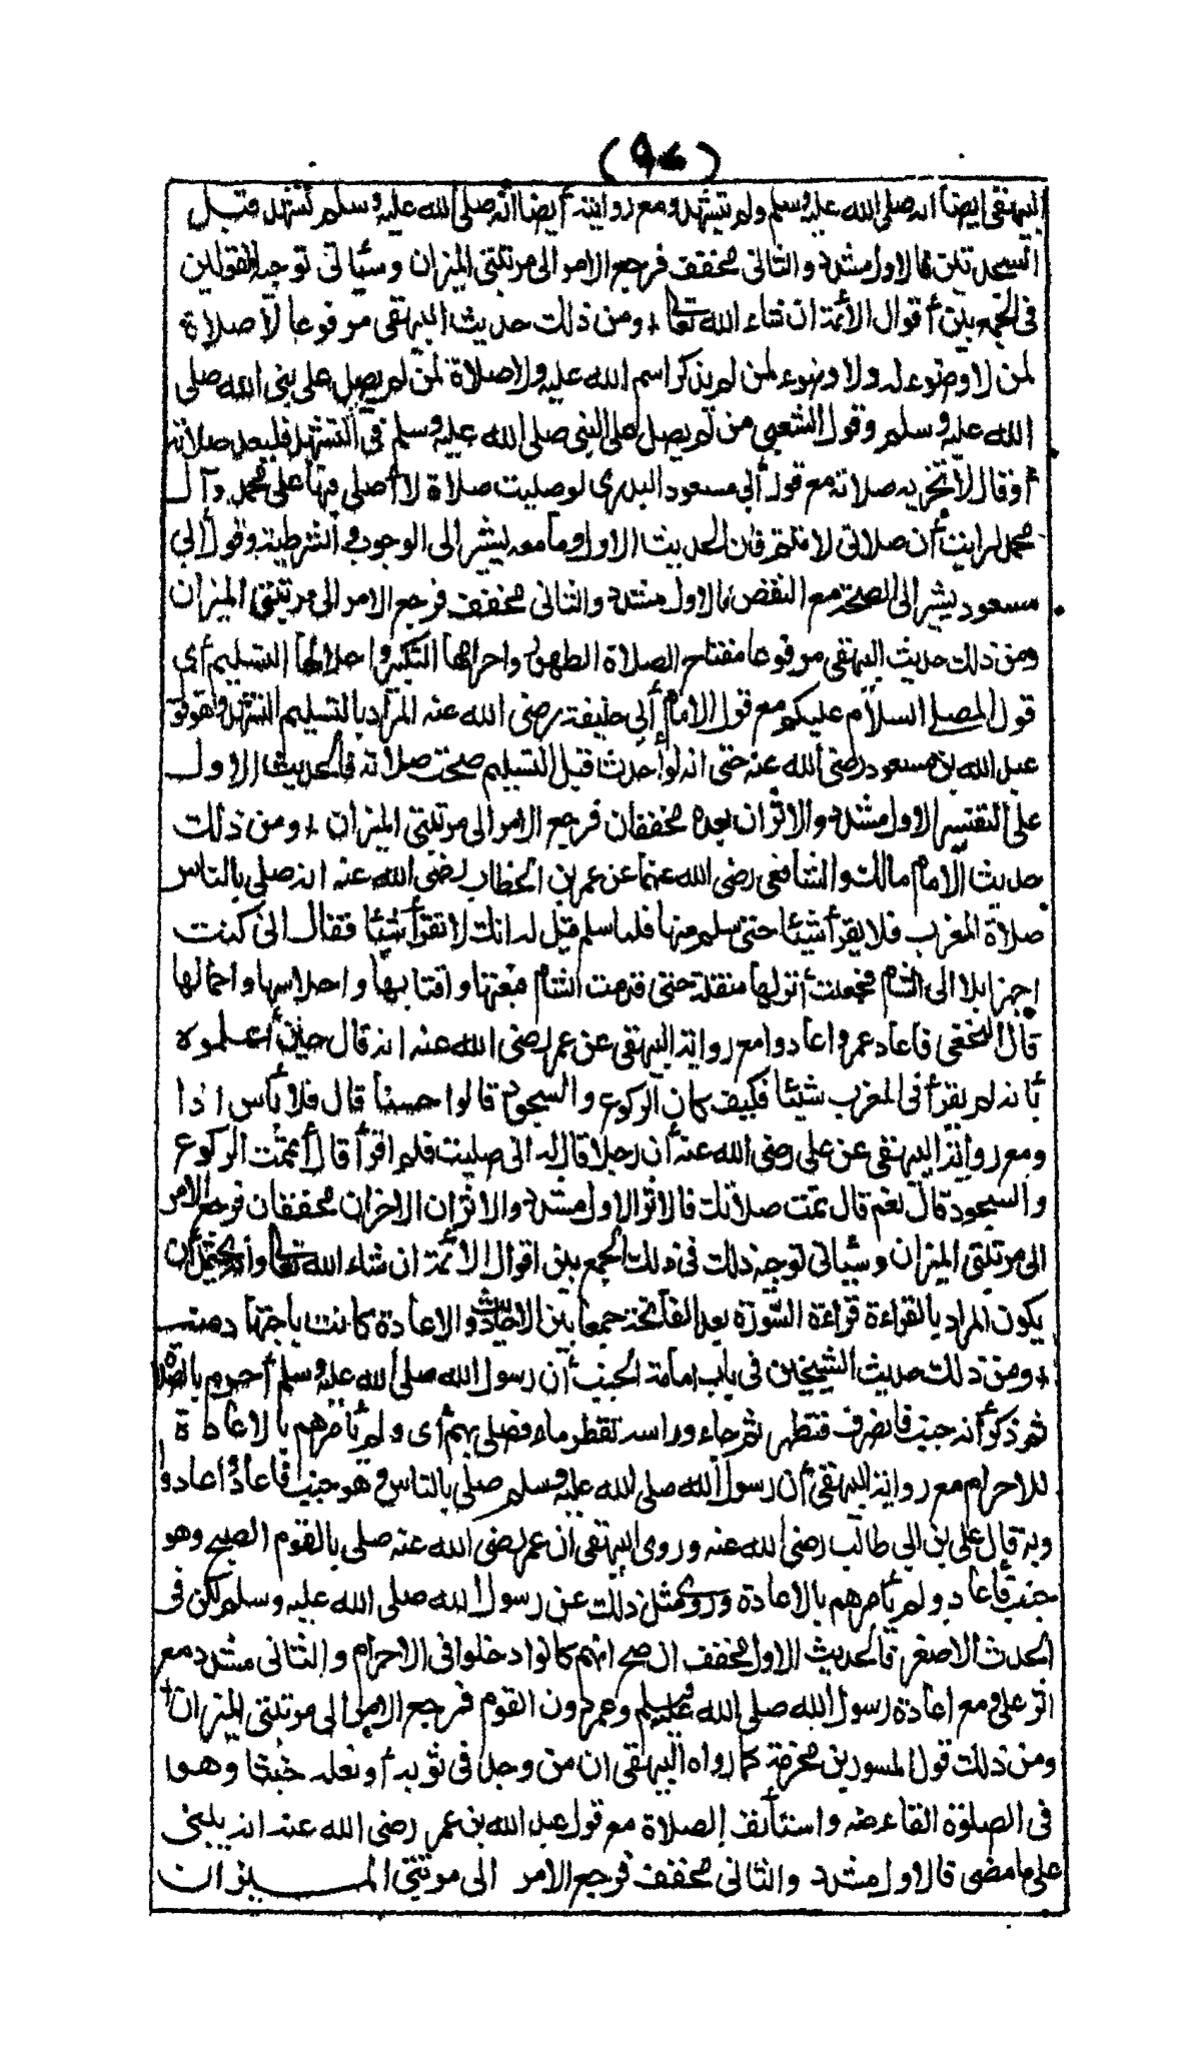 البيهقى أيضا أنه صلى الله عليه وسلم ولم يتشهد ومع روايته أيضا انه صلى الله عليه وسلم تشهد قبل
السجدتين فالاول مشدد والثانى مخفف فرجع الامر الى مرتبتى الميزان وسيأتى توجيه القولين
فى الجمع بين أقوال الأئمة ان شاء الله تعالى ومن ذلك حديث البيهقى مرفوعا لا صلاة
لمن لا وضوء له ولا وضوء لمن لم يذكر اسم الله عليه ولا صلاة لمن لم يصل على نبى الله صلى
الله عليه وسلم وقول الشعبى من لم يصل على النبى صلى الله عليه وسلم فى التشهد فليعد صلاته
أو قال لا تجزيه صلاته مع قول أبى مسعود البدرى لو صليت صلاة لا أصلى فيها على محمد وآل
محمد لرايت أن صلاتى لا تتم فان الحديث الاول وما معه يشير الى الوجوب والشرطية وقول أبى
مسعود يشير الى الصحة مع النقص فالاول مشدد والثانى مخفف فرجع الامر الى مرتبتى الميزان
ومن ذلك حديث البيهقى مرفوعا مفتاح الصلاة الطهور واحرامها التكبير واحلالها التسليم أى
قول المصلى السلام عليكم مع قول الامام أبى حنيفة رضى الله عنه المراد بالتسليم التشهد وهو قول
عبد الله بن مسعود رضى الله عنه حتى انه لو أحدث قبل التسليم صحت صلاته فالحديث الاول
على التفسير الاول مشدد والاثران بعده مخففان فرجع الامر الى مرتبتى الميزان ومن ذلك
حديث الامام مالك والشافعى رضى الله عنهما عن عمر بن الخطاب رضى الله عنه انه صلى بالناس
صلاة المغرب فلا يقرأ شيئا حتى سلم منها فلما سلم قيل له انك لا تقرأ شيئا فقال انى كنت
اجهز ابلا الى الشام فجعلت أنزلها منقلة حتى قدمت الشام فبعتها واقتابها واحلاسها واحمالها
قال النخعى فاعاد عمر واعادوا مع رواية البيهقى عن عمر رضى الله عنه انه قال حين أعلموه
بأنه لم يقرأ فى المغرب شيئا فكيف كان الركوع والسجود قالوا حسنا قال فلا بأس اذا
ومع رواية البيهقى عن على رضى الله عنه أن رجلا قال له انى صليت فلم اقرأ قال أتممت الركوع
والسجود قال نعم قال تمت صلاتك فالاثر الاول مشدد والاثران الاخران مخففان فرجع الامر
الى مرتبتى الميزان وسيأتى توجيه ذلك فى ذلك الجمع بين اقوال الأئمة ان شاء الله تعالى وأنه يحتمل أن
يكون المراد بالقراءة قراءة السورة بعد الفاتحة جمعا بين الاحاديث والاعادة كانت باجتهاد منه
ومن ذلك حديث الشيخين فى باب امامة الجنب أن رسول الله صلى الله عليه وسلم أحرم بالصلاة
ثم ذكر أنه جنب فانصرف فتطهر ثم جاء وراسه تقطر ماء فصلى بهم أى ولم يأمرهم بالاعادة
للاحرام مع رواية البيهقى أن رسول الله صلى الله عليه وسلم صلى بالناس وهو جنب فأعاد وأعادوا
وبه قال على بن ابى طالب رضى الله عنه وروى البيهقى ان عمر رضى الله عنه صلى بالقوم الصبح وهو
جنب فأعاد ولم يأمرهم بالاعادة وروى مثل ذلك عن رسول الله صلى الله عليه وسلم لكن فى
الحدث الاصغر فالحديث الاول مخفف ان صح انهم كانوا دخلوا فى الاحرام والثانى مشدد مع
اثر على ومع اعادة رسول الله صلى الله عليه وسلم وعمر دون القوم فرجع الامر الى مرتبتى الميزان
ومن ذلك قول المسور بن مخرمة كما رواه البيهقى ان من وجد فى ثوبه أو نعله خبثا وهو
فى الصلوة القاء عنه واستأنف الصلاة مع قول عبد الله بن عمر رضى الله عنه انه يبنى
على ما مضى فالاول مشدد والثانى مخفف فرجع الامر الى مرتبتى الميزان